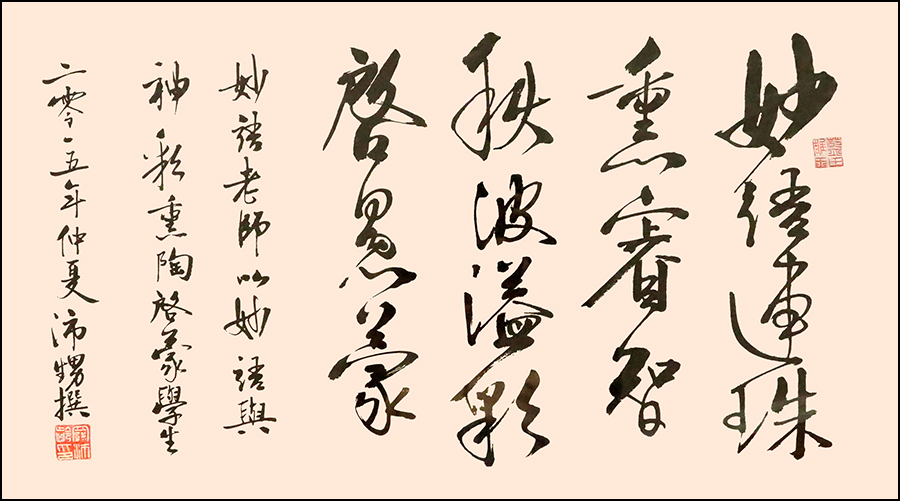 妙語連珠
熏睿智
秋波溢彩
啓愚蒙
妙語老師以妙語與
神彩熏陶啓蒙學生
二零一五年仲夏沛甥撰